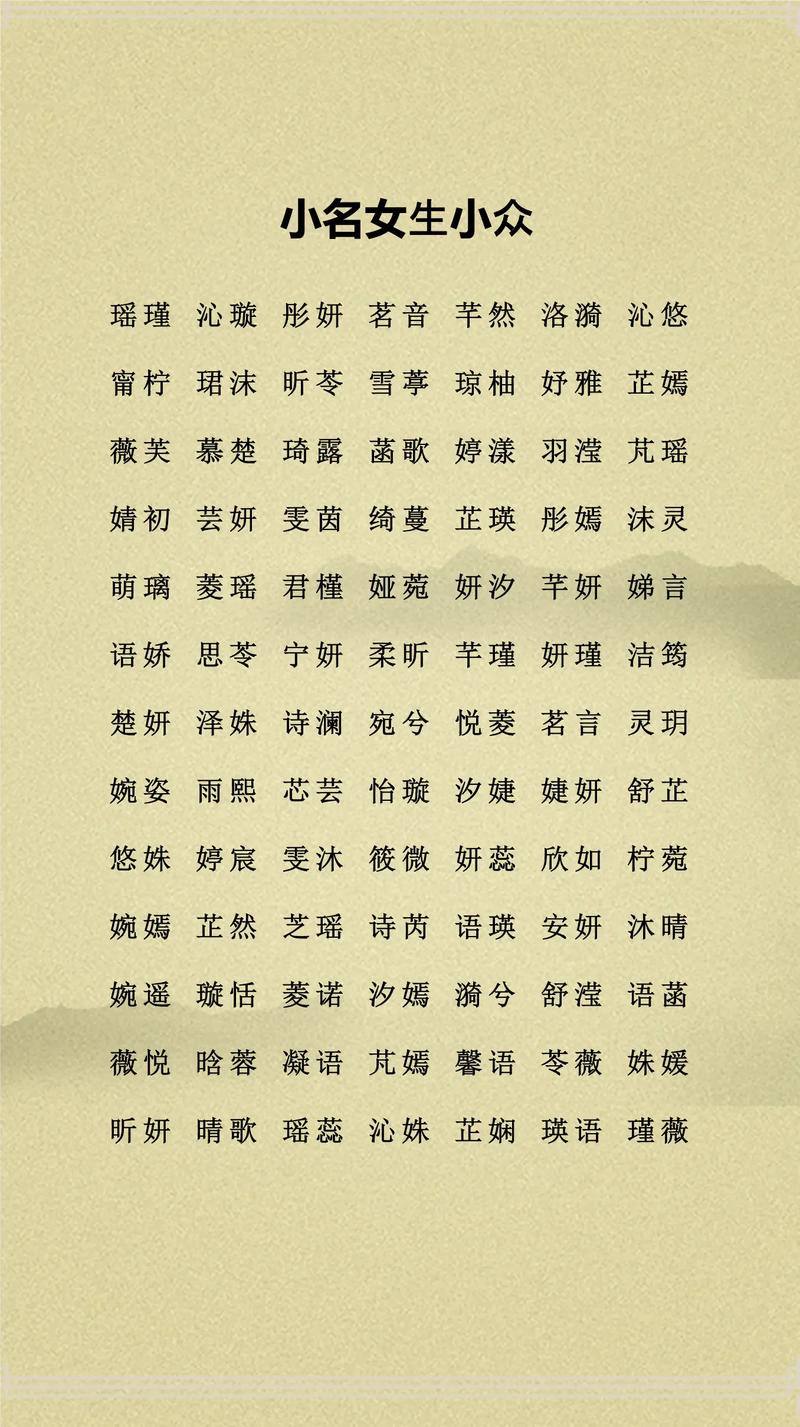 小名女生小众
瑶瑾 沁璇 彤妍 茗音 芊然 洛漪 沁悠
甯柠 珺沫 昕苓 雪葶 琼柚 妤雅 芷嫣
薇芙 慕楚 琦露 菡歌 婷漾 羽滢 芃瑶
婧初 芸妍 雯茵 绮蔓 芷瑛 彤嫣 沫灵
萌璃 菱瑶 君槿 娅菀 妍汐 芊妍 娣言
语娇 思苓 宁妍 柔昕 芊瑾 妍瑾 洁筠
楚妍 泽姝 诗澜 宛兮 悦菱 茗言 灵玥
婉姿 雨熙 芯芸 怡璇 汐婕 婕妍 舒芷
悠姝 婷宸 雯沐 筱微 妍蕊 欣如 柠菀
婉嫣 芷然 芝瑶 诗芮 语瑛 安妍 沐晴
婉遥 璇恬 菱诺 汐嫣 漪兮 舒滢 语菡
薇悦 晗蓉 凝语 芃嫣 馨语 苓薇 姝媛
昕妍 晴歌 瑶蕊 沁姝 芷娴 瑛语 瑾薇